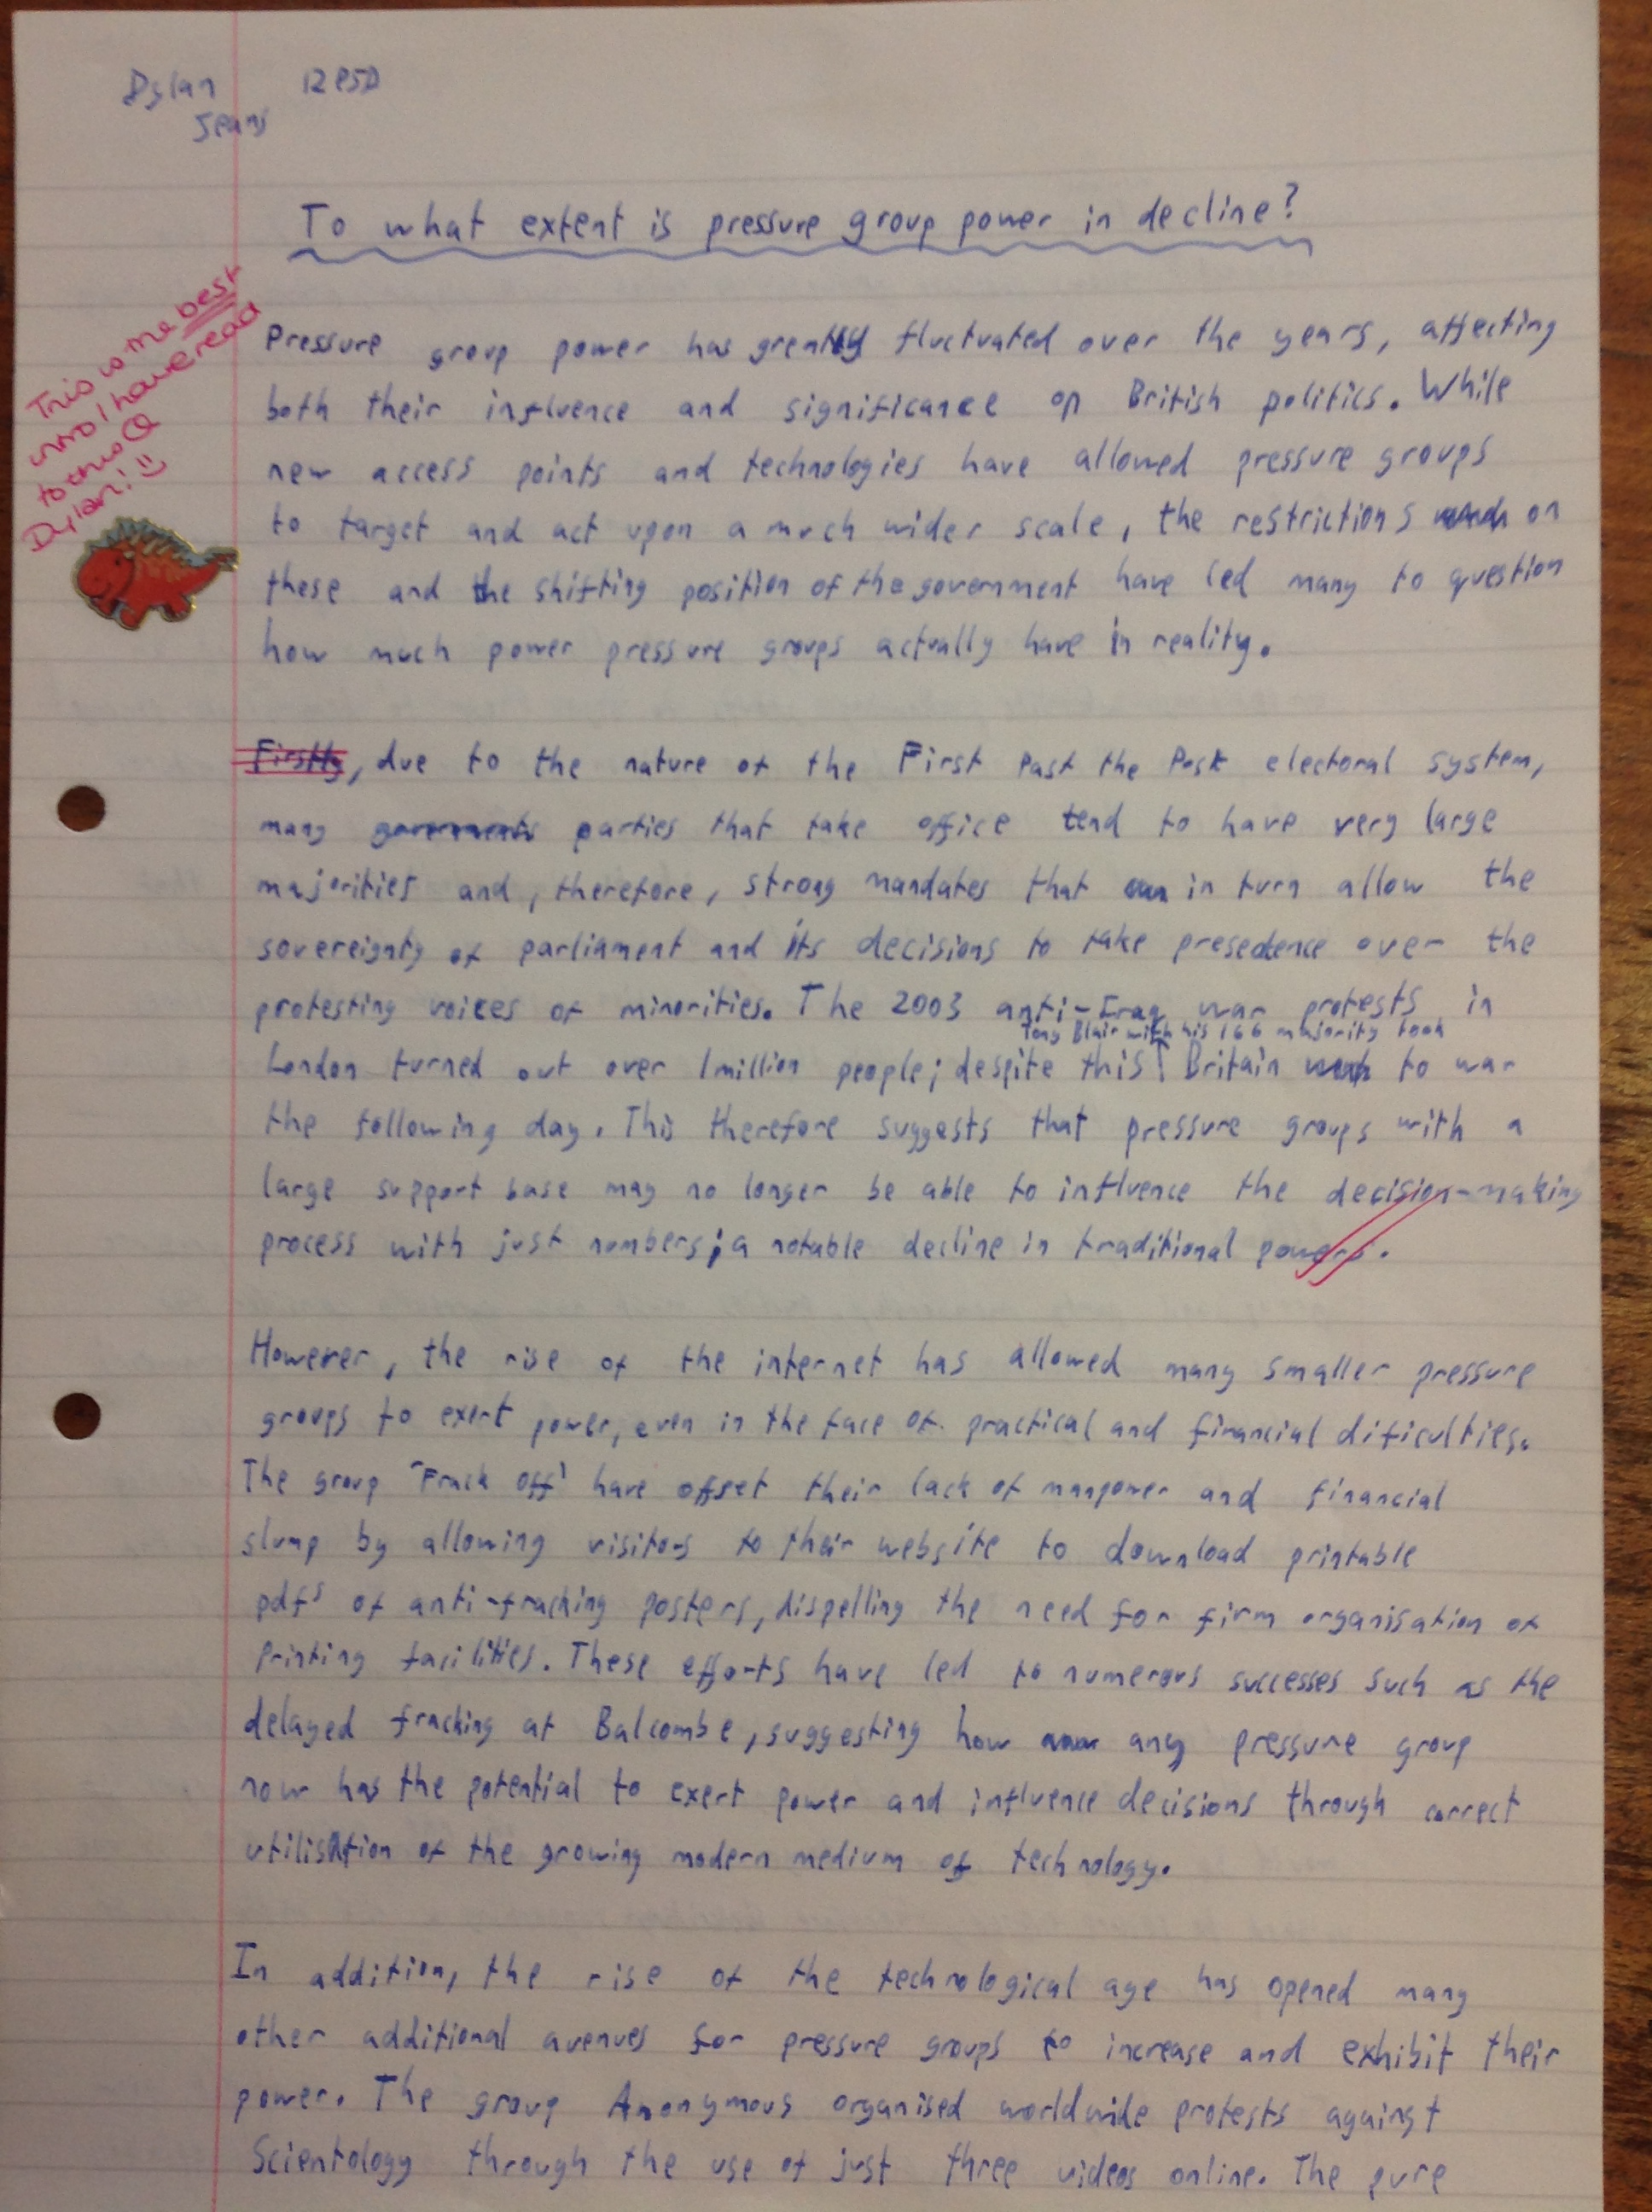 Dylan 12PSD
Jeans
To what extent is pressure group power in decline?
This is the best
intro I have read
to this Q
Dylan! :)
Pressure group power has greatly fluctuated over the years, affecting
both their influence and significance on British politics. While
new access points and technologies have allowed pressure groups
to target and act upon a much wider scale, the restrictions on
these and the shifting position of the government have led many to question
how much power pressure groups actually have in reality.
Firstly, due to the nature of the First Past the Post electoral system,
many governments parties that take office tend to have very large
majorities and, therefore, strong mandates that in turn allow the
sovereignty of parliament and its decisions to take presedence over the
protesting voices of minorities. The 2003 anti-Iraq war protests in
Tony Blair with his 166 majority took
London turned out over 1million people; despite this Britain to war
the following day. This therefore suggests that pressure groups with a
large support base may no longer be able to influence the decision-making
process with just numbers; a notable decline in traditional powers.
However, the rise of the internet has allowed many smaller pressure
groups to exert power, even in the face of practical and financial dificulties.
The group 'Frack Off' have offset their lack of manpower and financial
slump by allowing visitors to their website to download printable
pdfs of anti-fracking posters, dispelling the need for firm organisation of
printing facilities. These efforts have led to numerous successes such as the
delayed fracking at Balcombe, suggesting how any pressure group
now has the potential to exert power and influence decisions through correct
utilisation of the growing modern medium of technology.
In addition, the rise of the technological age has opened many
other additional avenues for pressure groups to increase and exhibit their
power. The group Anonymous organised worldwide protests against
Scientology through the use of just three videos online. The pure